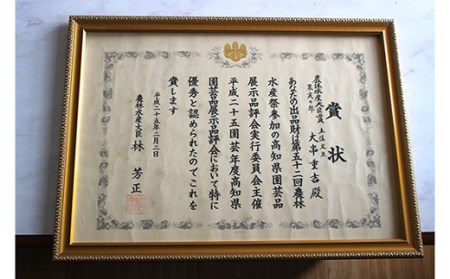 賞状
農林水産大臣賞
大串重吉殿
あなたの出品財は第五十二回農林
水産祭参加の高知県園芸品
展示品評会実行委員会主催
平成二十五園芸年度高知県
園芸品展示品評会において特に
優秀と認められたのでこれを
賞します
平成二十五年二月二日
農林水産大臣 林芳正